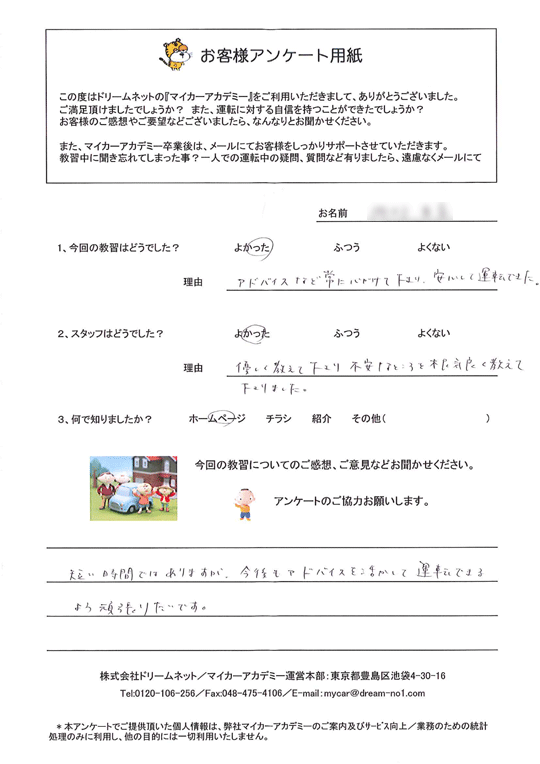 お客様アンケート用紙
この度はドリームネットの『マイカーアカデミー』をご利用いただきまして、ありがとうございました。
ご満足頂けましたでしょうか? また、運転に対する自信を持つことができたでしょうか?
お客様のご感想やご要望などございましたら、なんなりとお聞かせください。
また、マイカーアカデミー卒業後は、メールにてお客様をしっかりサポートさせていただきます。
教習中に聞き忘れてしまった事?一人での運転中の疑問、質問など有りましたら、遠慮なくメールにて
お名前
1、今回の教習はどうでした? よかった ふつう よくない
理由 アドバイスなど常に心がけて下さり、安心して運転できた。
2、スタッフはどうでした? よかった ふつう よくない
理由 優しく教えて下さり 不安なところを 教えて
下さりました。
3、何で知りましたか? ホームページ チラシ 紹介 その他( )
今回の教習についてのご感想、ご意見などお聞かせください。
アンケートのご協力お願いします。
短い時間ではありますが、今後もアドバイスを活かして運転できる
よう頑張りたいです。
株式会社ドリームネット/マイカーアカデミー運営本部:東京都豊島区池袋4-30-16
Tel:0120-106-256/Fax:048-475-4106/E-mail:mycar@dream-no1.com
*本アンケートでご提供頂いた個人情報は、弊社マイカーアカデミーのご案内及びサービス向上/業務のための統計
処理のみに利用し、他の目的には一切利用いたしません。